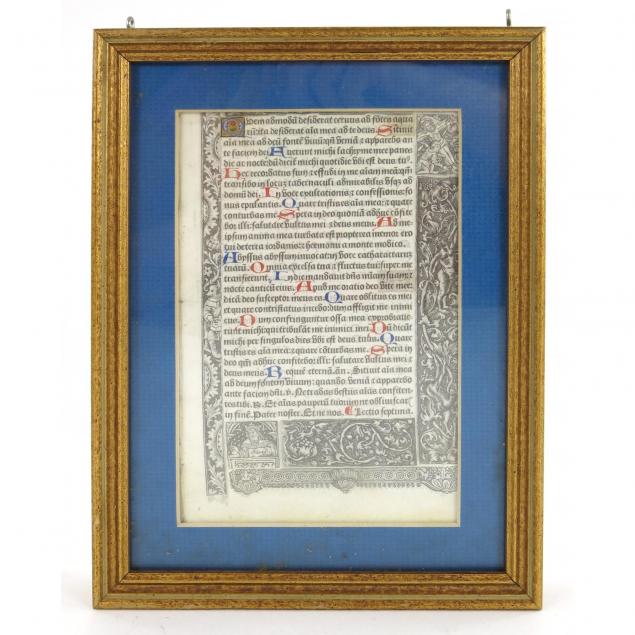 Quem admodū desiderat ceruus ad fōtes aqua
rū: ita desiderat aīa mea ad te deus. Sitiuit
aīa mea ad deū fontē viuū: qn̄ veniā & apparebo an
te faciem dei. Fuerunt michi lachryme mee pane
die ac nocte: dū dicit michi quotidie vbi est deus tu?
Hec recordatus sum & effudi in me aīam meā: qm̄
transibo in locū tabernaculi admirabilis vsq; ad
domū dei. In voce exultationis & confessionis: so
nus epulantis. Quare tristis es aīa mea: & quare
conturbas me. Spera in deo quoniā adhuc cōfite
bor illi: salutare vultus mei & deus meus. Ad me
ipsum anima mea turbata est: propterea memor ero
tui de terra iordanis: & hermonii a monte modico.
Abyssus abyssum inuocat: in voce catharactarum
tuarū. Omnia excelsa tua & fluctus tui: super me
transierunt. In die mandauit dn̄s miam suam: &
nocte canticū eius. Apud me oratio deo vite mee:
dicā deo susceptor meus es. Quare oblitus es mei
et quare contristatus incedo: dum affligit me inimi
cus. Dum confringuntur ossa mea: exprobrauer
runt michi: qui tribulāt me inimici mei. Dū dicūt
michi per singulos dies vbi est deus tuus. Quare
tristis es aīa mea: & quare cōturbas me. Spera in
deo qm̄ adhuc confitebor illi: salutare vultus mei &
deus meus. Requiē eternā. añ. Sitiuit aīa mea
ad deum fontem viuum: quando veniā & apparebo
ante faciem dn̄i. v. Ne tradas bestiis aīas confiten
tes tibi. R. Et aīas pauperū tuorum ne obliuiscar
in finē. Pater noster. Et ne nos. Lectio septima.